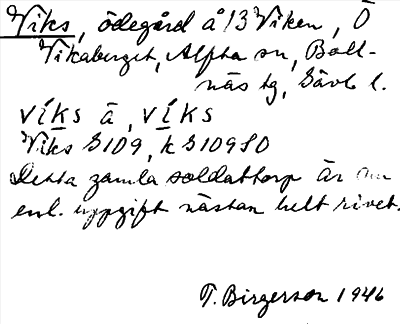 Viks, ödegård å 13 Viken, Ö
Vikaberget, Alfta sn, Boll-
näs tg, Gävb l.
víks ā, víks
Viks G109, k G109 SO
Detta gamla soldattorp är nu
enl. uppgift nästan helt rivet.
T. Birgerson 1946